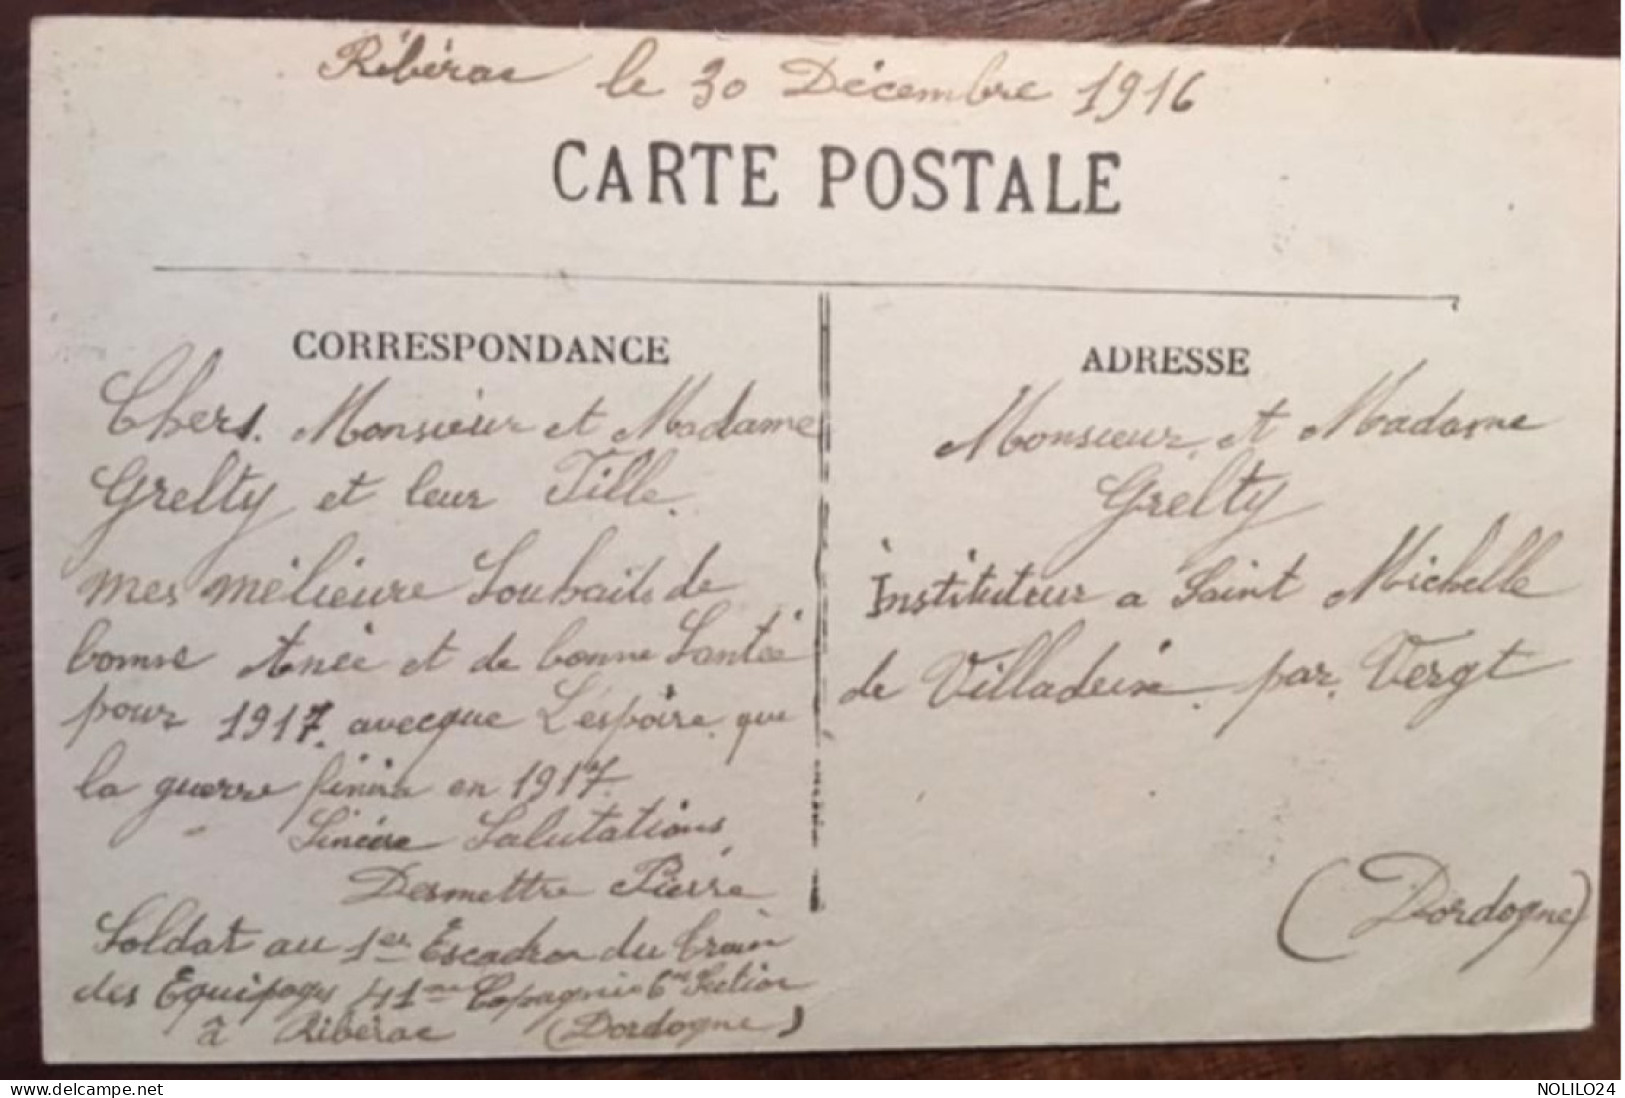 Ribérac le 30 Décembre 1916
CARTE POSTALE
CORRESPONDANCE
Chers. Monsieur et Madame
Grelty et leur Fille.
mes mélieure Souhaits de
bonne Anée et de bonne Santée
pour 1917. avecque L'espoire que
la guerre finira en 1917.
Sincère Salutations
Desmettre Pierre
Soldat au 1er Escadron du train
des Equipages 41me Copagnie 6me Section
à Ribérac (Dordogne)
ADRESSE
Monsieur et Madame
Grelty
Instituteur a Saint Michelle
de Villadeix par Vergt
(Dordogne)
delcampe.net
NOLILO24